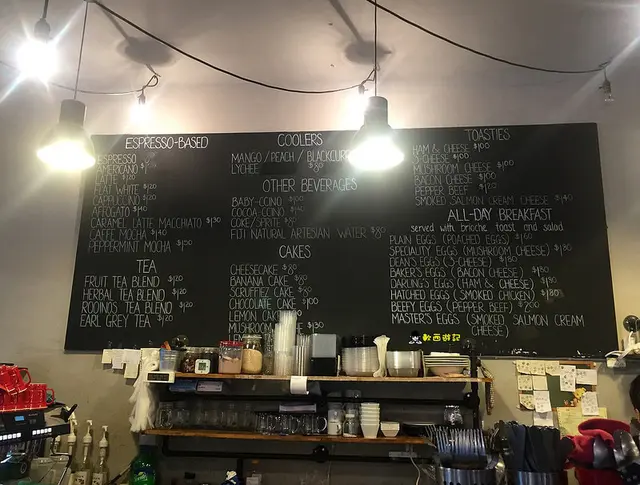 ESPRESSO-BASED
ESPRESSO
AMERICANO
FLAT WHITE $120
CAPPUCCINO $120
AFFOGATO $140
CARAMEL LATTE MACCHIATO $130
CAFFE MOCHA $140
PEPPERMINT MOCHA $150
TEA
FRUIT TEA BLEND $120
HERBAL TEA BLEND $120
ROOIBOS TEA BLEND $120
EARL GREY TEA $120
COOLERS
MANGO / PEACH / BLACKCURR
LYCHEE $80
OTHER BEVERAGES
BABY-CCINO $100
COCOA-CCINO
COKE/SPRITE $80
FIJI NATURAL ARTESIAN WATER $80
CAKES
CHEESECAKE $80
BANANA CAKE $80
SCRUFFIEZ CAKE $80
CHOCOLATE CAKE $100
LEMON CAKE
MUSHROOM $130
TOASTIES
HAM & CHEESE $100
3-CHEESE $100
MUSHROOM CHEESE $100
BACON CHEESE $100
PEPPER BEEF $120
SMOKED SALMON CREAM CHEESE $140
ALL-DAY BREAKFAST
served with brioche toast and salad
PLAIN EGGS (POACHED EGGS)
SPECIALTY EGGS (MUSHROOM CHEESE) $180
DEAN'S EGGS (3-CHEESE) $180
BAKER'S EGGS (BACON CHEESE) $180
DARLING'S EGGS (HAM & CHEESE) $180
HATCHED EGGS (SMOKED CHICKEN) $180
BEEFY EGGS (PEPPER BEEF) $200
MASTER'S EGGS (SMOKED SALMON CREAM
CHEESE)
軟西遊記